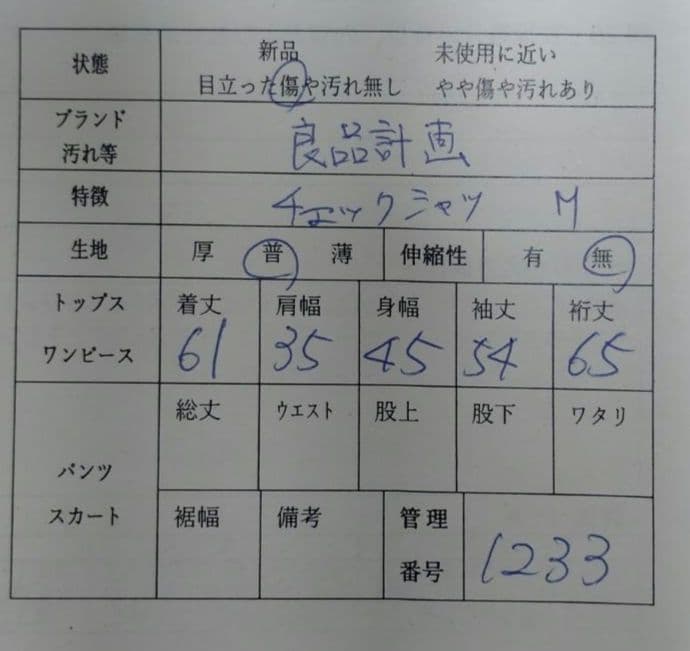 状態 新品 未使用に近い
目立った傷や汚れ無し やや傷や汚れあり
ブランド
汚れ等 良品計画
特徴 チェックシャツ M
生地 厚 普 薄 伸縮性 有 無
トップス 着丈 肩幅 身幅 袖丈 裄丈
ワンピース 61 35 45 54 65
総丈 ウエスト 股上 股下 ワタリ
パンツ
スカート 裾幅 備考 管理
番号 1233